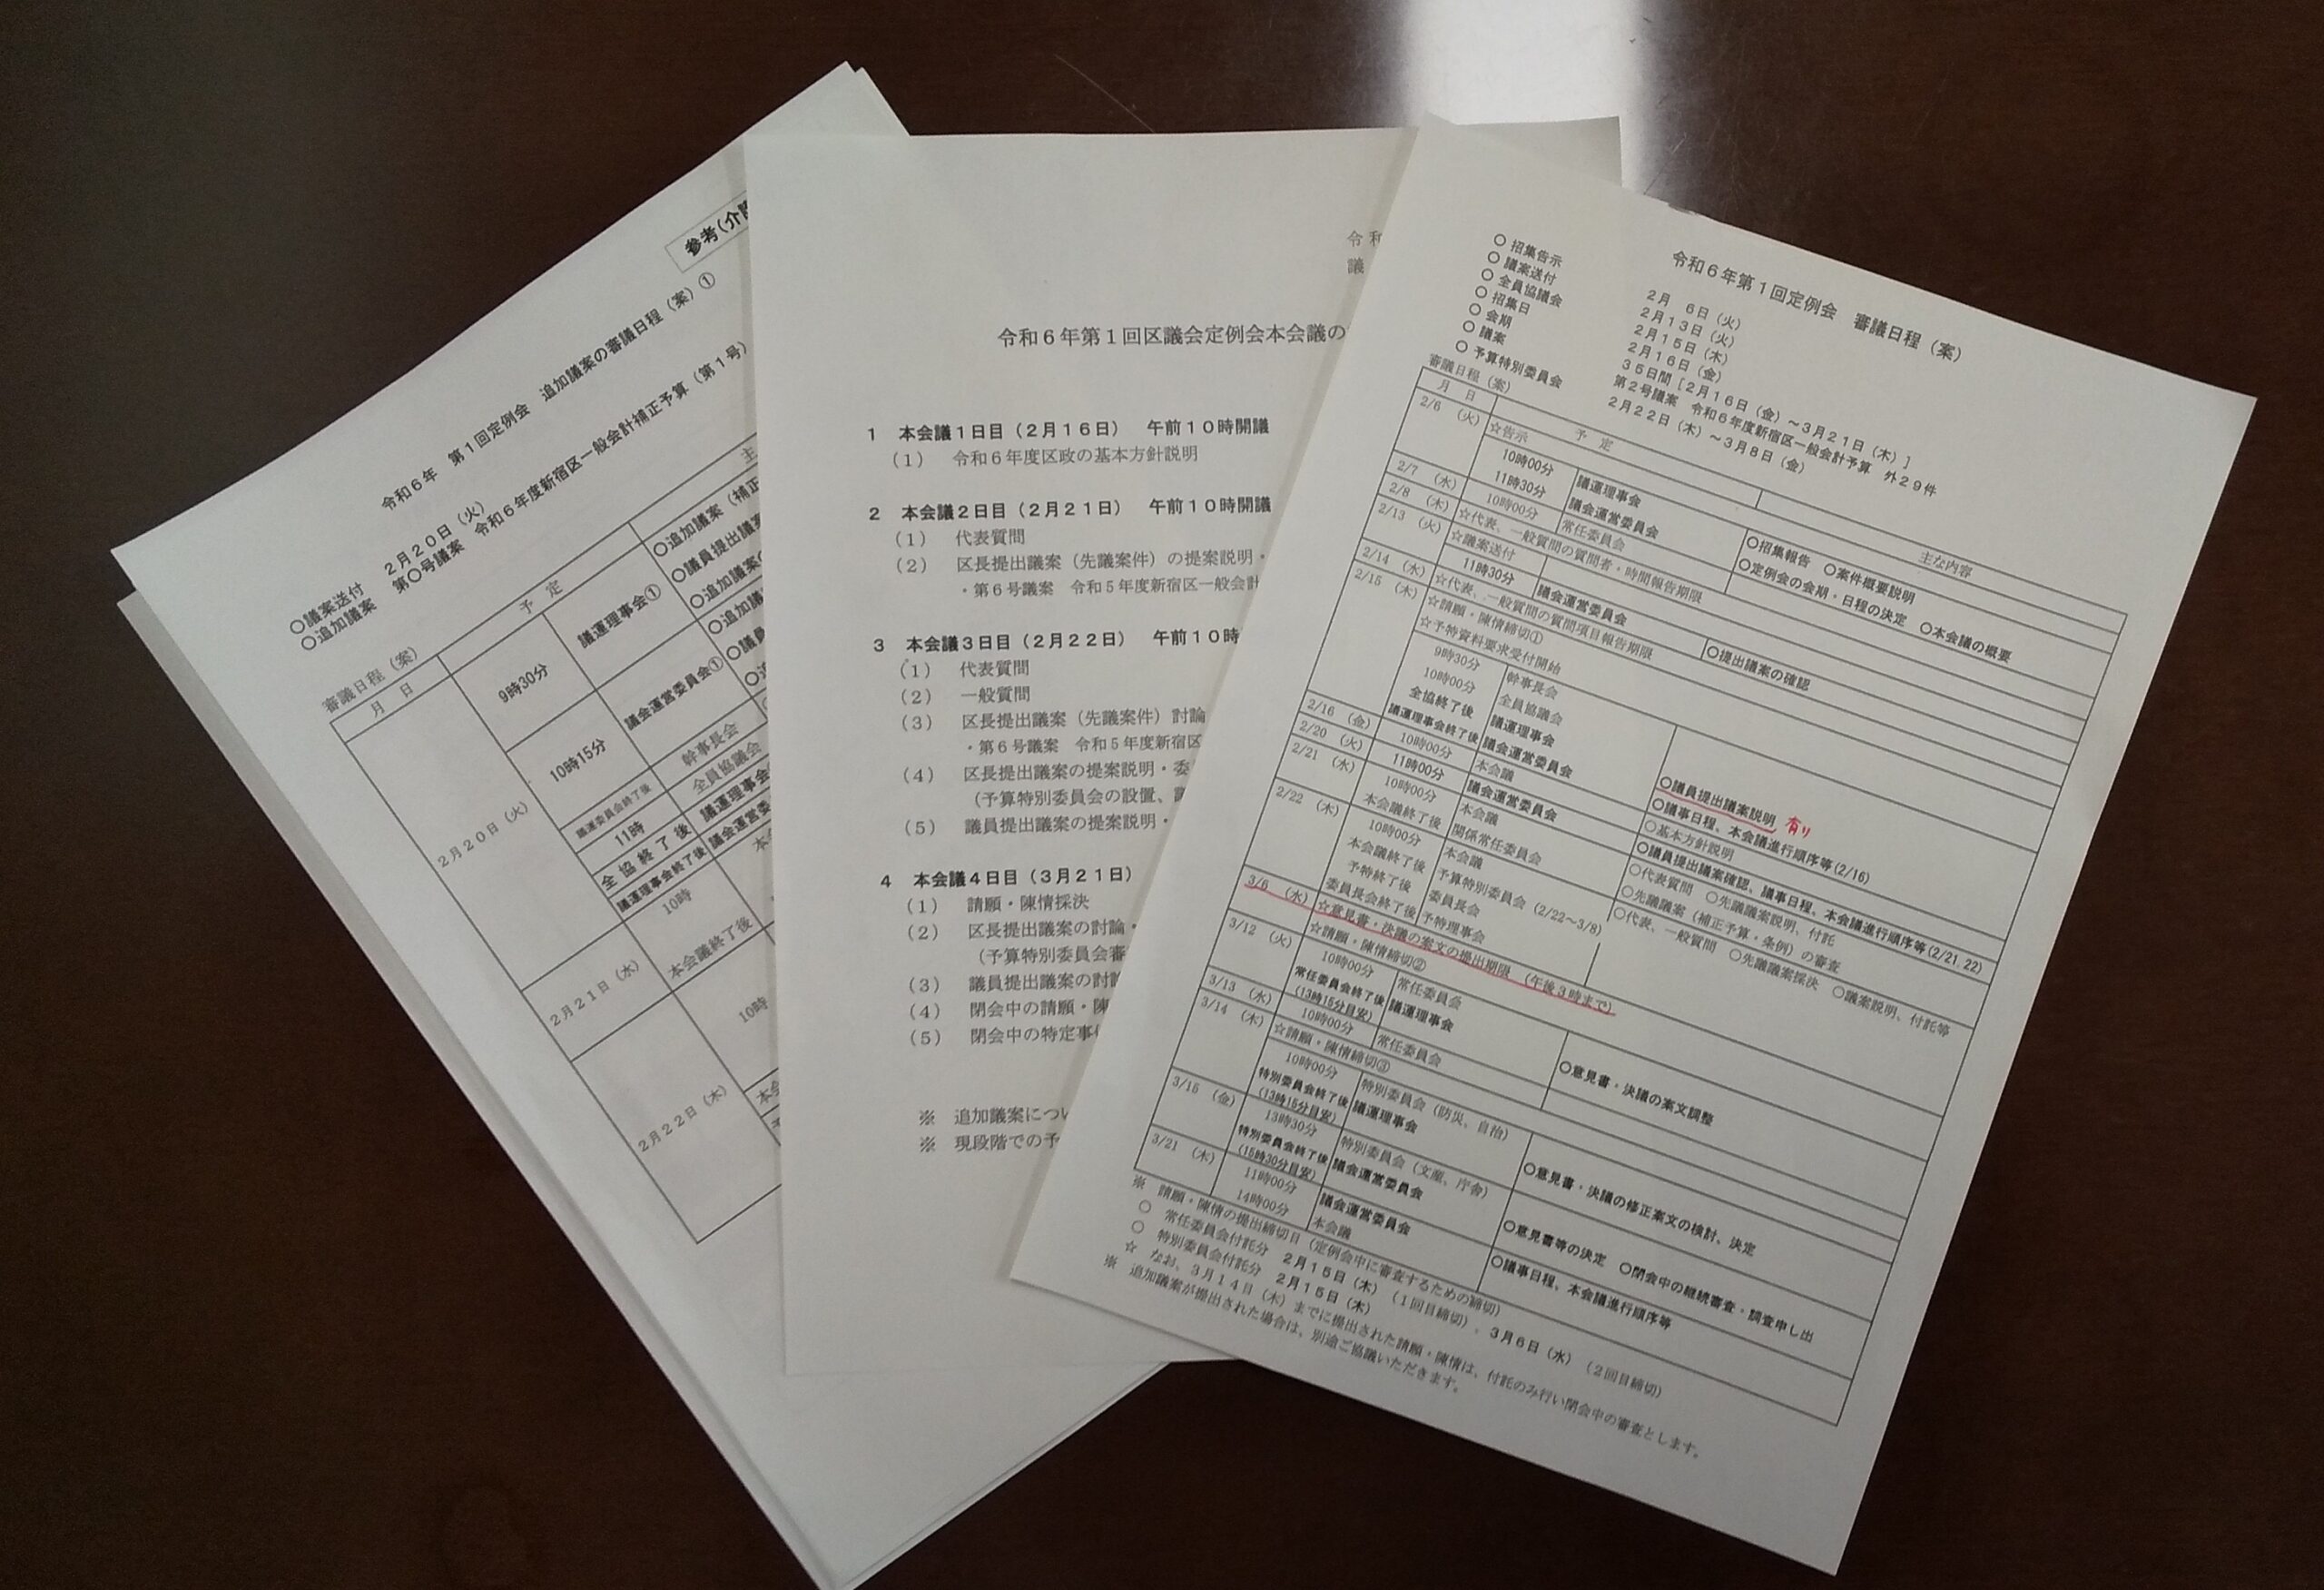 参考(介
令和６年　第１回定例会　追加議案の審議日程（案）①
○議案送付　２月２０日（火）
○追加議案　第○号議案　令和６年度新宿区一般会計補正予算（第１号）
審議日程（案）
月　日　予　定　主
２月２０日（火）
9時30分　議運理事会①
○追加議案（補正
○議員提出議案
○追加議案の
10時15分　議会運営委員会①
○追加
○議員
議運委員会終了後　幹事長会
11時　全員協議会
全　協　終　了　後　議運理事会
議運理事会終了後　議会運営委
２月２１日（水）
10時
本会議終了後
２月２２日（木）
10時
令和
議
令和６年第１回区議会定例会本会議の
１　本会議１日目（２月１６日）　午前１０時開議
（１）　令和６年度区政の基本方針説明
２　本会議２日目（２月２１日）　午前１０時開議
（１）　代表質問
（２）　区長提出議案（先議案件）の提案説明・
・第６号議案　令和５年度新宿区一般会計
３　本会議３日目（２月２２日）　午前１０時
（１）　代表質問
（２）　一般質問
（３）　区長提出議案（先議案件）討論
・第６号議案　令和５年度新宿区
（４）　区長提出議案の提案説明・委
（予算特別委員会の設置、
（５）　議員提出議案の提案説明・
４　本会議４日目（３月２１日）
（１）　請願・陳情採決
（２）　区長提出議案の討論・
（予算特別委員会審
（３）　議員提出議案の討論
（４）　閉会中の請願・陳
（５）　閉会中の特定事
※　追加議案につい
※　現段階での予
令和６年第１回定例会　審議日程（案）
○　招集告示　２月　６日（火）
○　議案送付　２月１３日（火）
○　全員協議会　２月１５日（木）
○　招集日　２月１６日（金）
○　会期　３５日間［２月１６日（金）～３月２１日（木）］
○　議案　第２号議案　令和６年度新宿区一般会計予算　外２９件
○　予算特別委員会　２月２２日（木）～３月８日（金）
審議日程（案）
月　日　予　定　主な内容
2/6　（火）　☆告示
10時00分　議運理事会
11時30分　議会運営委員会　○招集報告　○案件概要説明
○定例会の会期・日程の決定　○本会議の概要
2/7　（水）　10時00分　常任委員会
2/8　（木）　☆代表、一般質問の質問者・時間報告期限
2/13　（火）　☆議案送付
11時30分　議会運営委員会　○提出議案の確認
2/14　（水）　☆代表、一般質問の質問項目報告期限
2/15　（木）　☆請願・陳情締切①
☆予特資料要求受付開始
9時30分　幹事長会
10時00分　全員協議会
全協終了後　議運理事会　○議員提出議案説明　有り
議運理事会終了後　議会運営委員会　○議事日程、本会議進行順序等(2/16)
2/16　（金）　10時00分　本会議　○基本方針説明
2/20　（火）　11時00分　議会運営委員会　○議員提出議案確認、議事日程、本会議進行順序等(2/21、22)
2/21　（水）　10時00分　本会議　○代表質問　○先議議案説明、付託
本会議終了後　関係常任委員会　○先議議案（補正予算・条例）の審査
2/22　（木）　10時00分　本会議　○代表、一般質問　○先議議案採決　○議案説明、付託等
本会議終了後　予算特別委員会（2/22～3/8）
予特終了後　委員長会
委員長会終了後　予特理事会
3/6　（水）　☆意見書・決議の案文の提出期限　（午後３時まで）
☆請願・陳情締切②
3/12　（火）　10時00分　常任委員会
常任委員会終了後　議運理事会　○意見書・決議の案文調整
(13時15分目安)
3/13　（水）　10時00分　常任委員会
3/14　（木）　☆請願・陳情締切③
10時00分　特別委員会（防災、自治）
特別委員会終了後　議運理事会　○意見書・決議の修正案文の検討、決定
(13時15分目安)
3/15　（金）　13時30分　特別委員会（文産、庁舎）
特別委員会終了後　議会運営委員会　○意見書等の決定　○閉会中の継続審査・調査申し出
(15時30分目安)
3/21　（木）　11時00分　議会運営委員会　○議事日程、本会議進行順序等
14時00分　本会議
※　請願・陳情の提出締切日（定例会中に審査するための締切）
○　常任委員会付託分　２月１５日（木）（１回目締切）、３月６日（水）（２回目締切）
○　特別委員会付託分　２月１５日（木）
☆　なお、３月１４日（木）までに提出された請願・陳情は、付託のみ行い閉会中の審査とします。
※　追加議案が提出された場合は、別途ご協議いただきます。